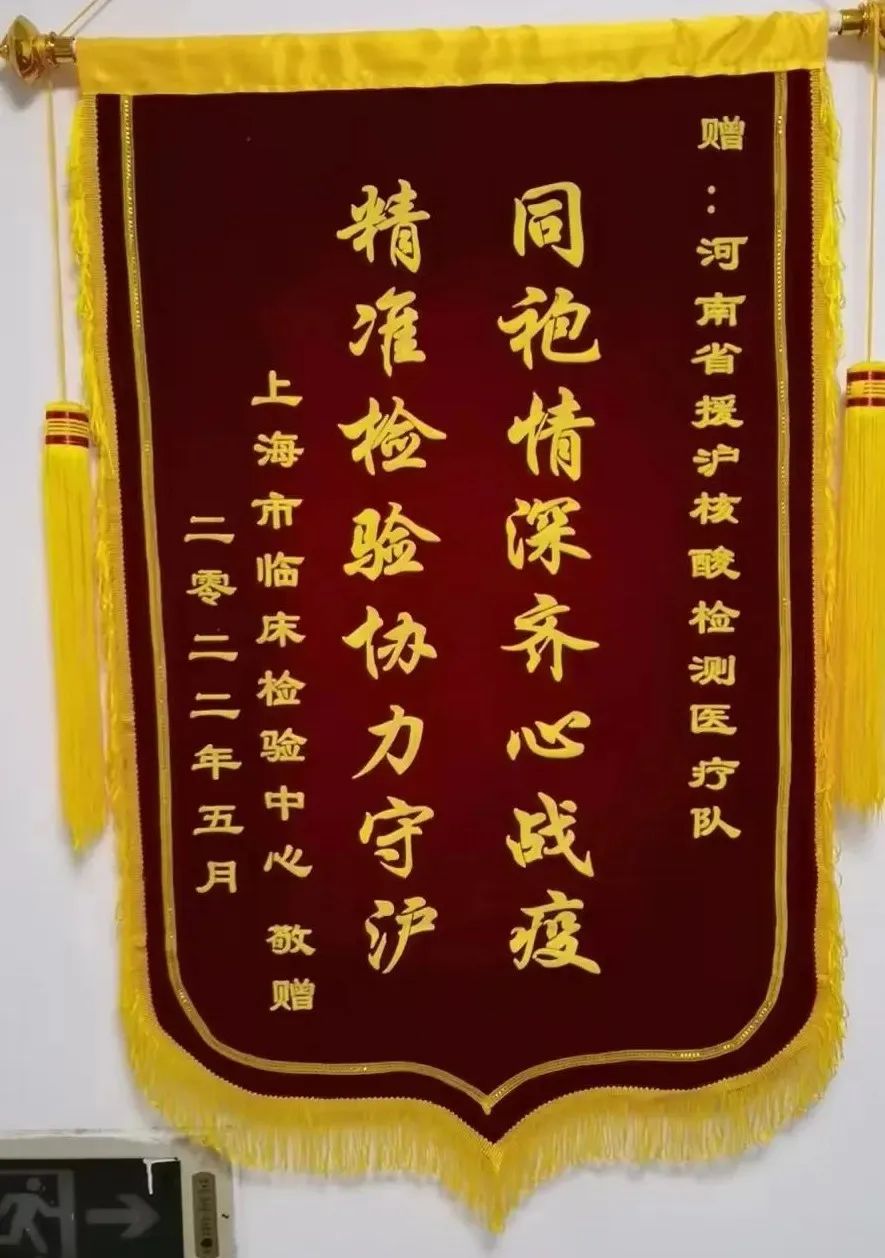 赠:河南省援沪核酸检测医疗队
同袍情深齐心战疫
精准检验协力守沪
上海市临床检验中心 敬赠
二零二二年五月